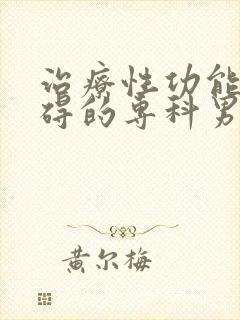 治療性功能
碍的専科男
黄尔梅